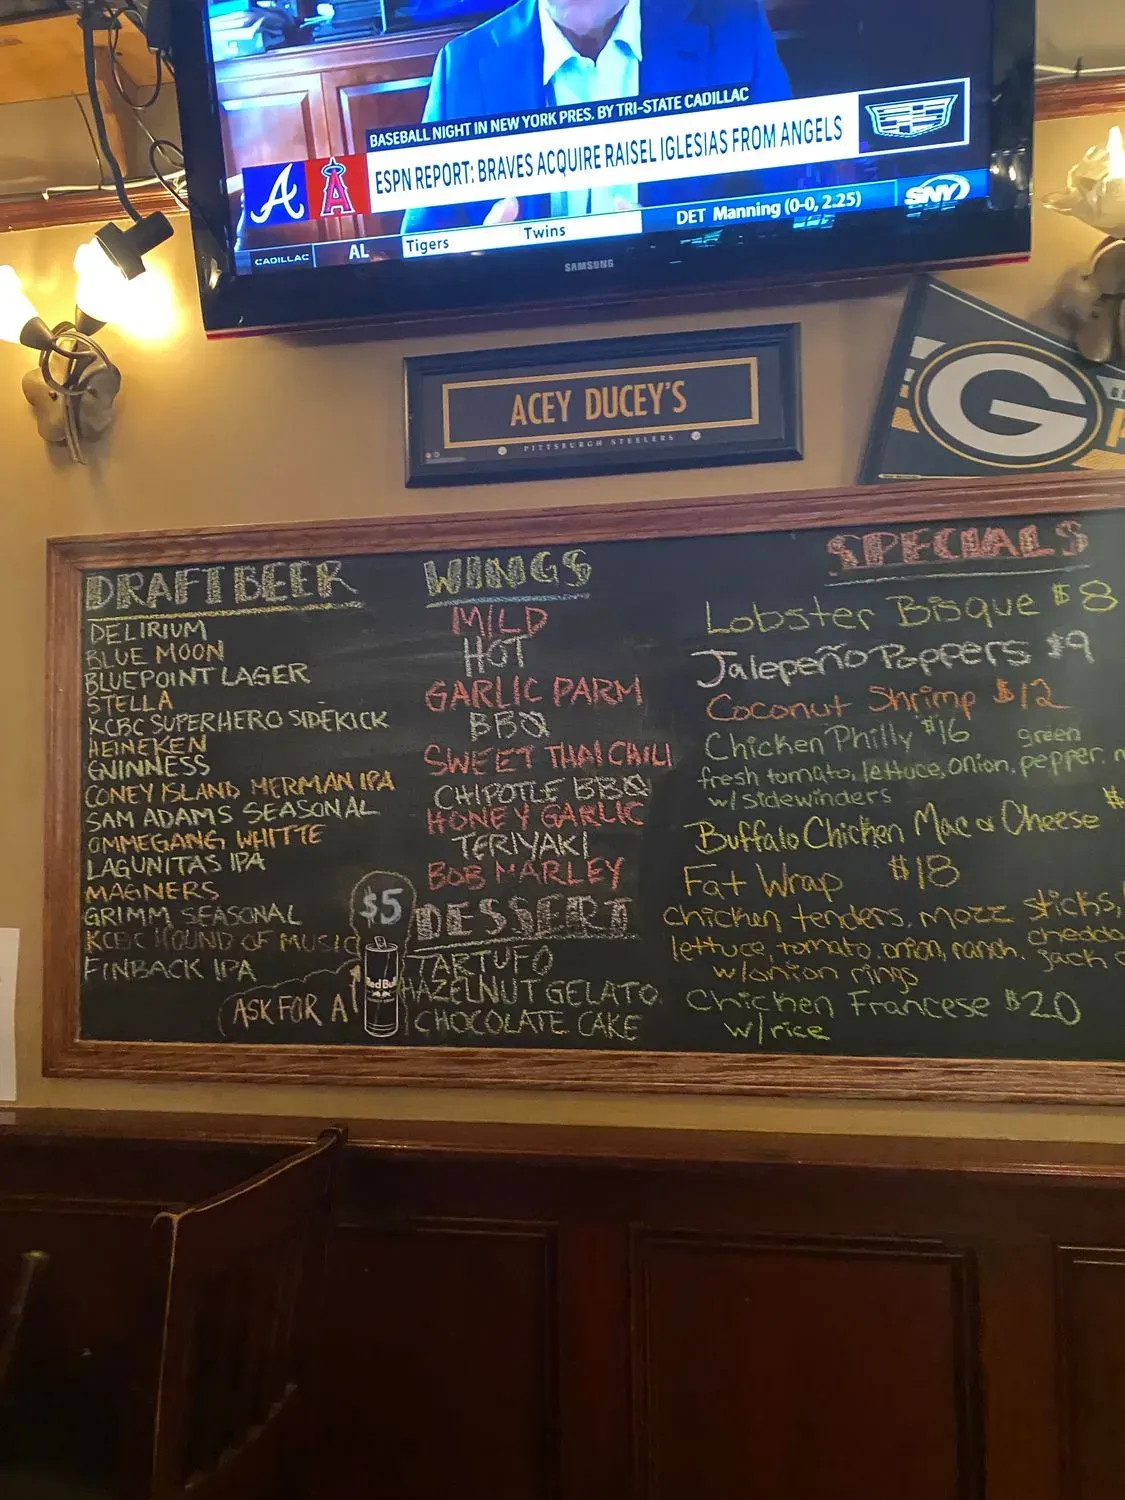 BASEBALL NIGHT IN NEW YORK PRES. BY TRI-STATE CADILLAC
ESPN REPORT: BRAVES ACQUIRE RAISEL IGLESIAS FROM ANGELS
A
A
CADILLAC
AL
Tigers
Twins
DET Manning (0-0, 2.25)
SNY
SAMSUNG
ACEY DUCEY'S
PITTSBURGH STEELERS
G
DRAFT BEER
DELIRIUM
BLUE MOON
BLUEPOINT LAGER
STELLA
KCBC SUPERHERO SIDEKICK
HEINEKEN
GUINNESS
CONEY ISLAND MERMAN IPA
SAM ADAMS SEASONAL
OMMEGANG WHITTE
LAGUNITAS IPA
MAGNERS
GRIMM SEASONAL
KCBC HOUND OF MUSIC
FINBACK IPA
$5
Red Bull
ASK FOR A
WINGS
MILD
HOT
GARLIC PARM
BBQ
SWEET THAI CHILI
CHIPOTLE BBQ
HONEY GARLIC
TERIYAKI
BOB MARLEY
DESSERT
TARTUFO
HAZELNUT GELATO
CHOCOLATE CAKE
SPECIALS
Lobster Bisque $8
Jalepeño Poppers $9
Coconut Shrimp $12
Chicken Philly $16
green
fresh tomato, lettuce, onion, pepper,
w/ sidewinders
Buffalo Chicken Mac & Cheese $
Fat Wrap $18
chicken tenders, mozz sticks,
lettuce, tomato, onion, ranch, jack
w/onion rings
Chicken Francese $20
w/rice